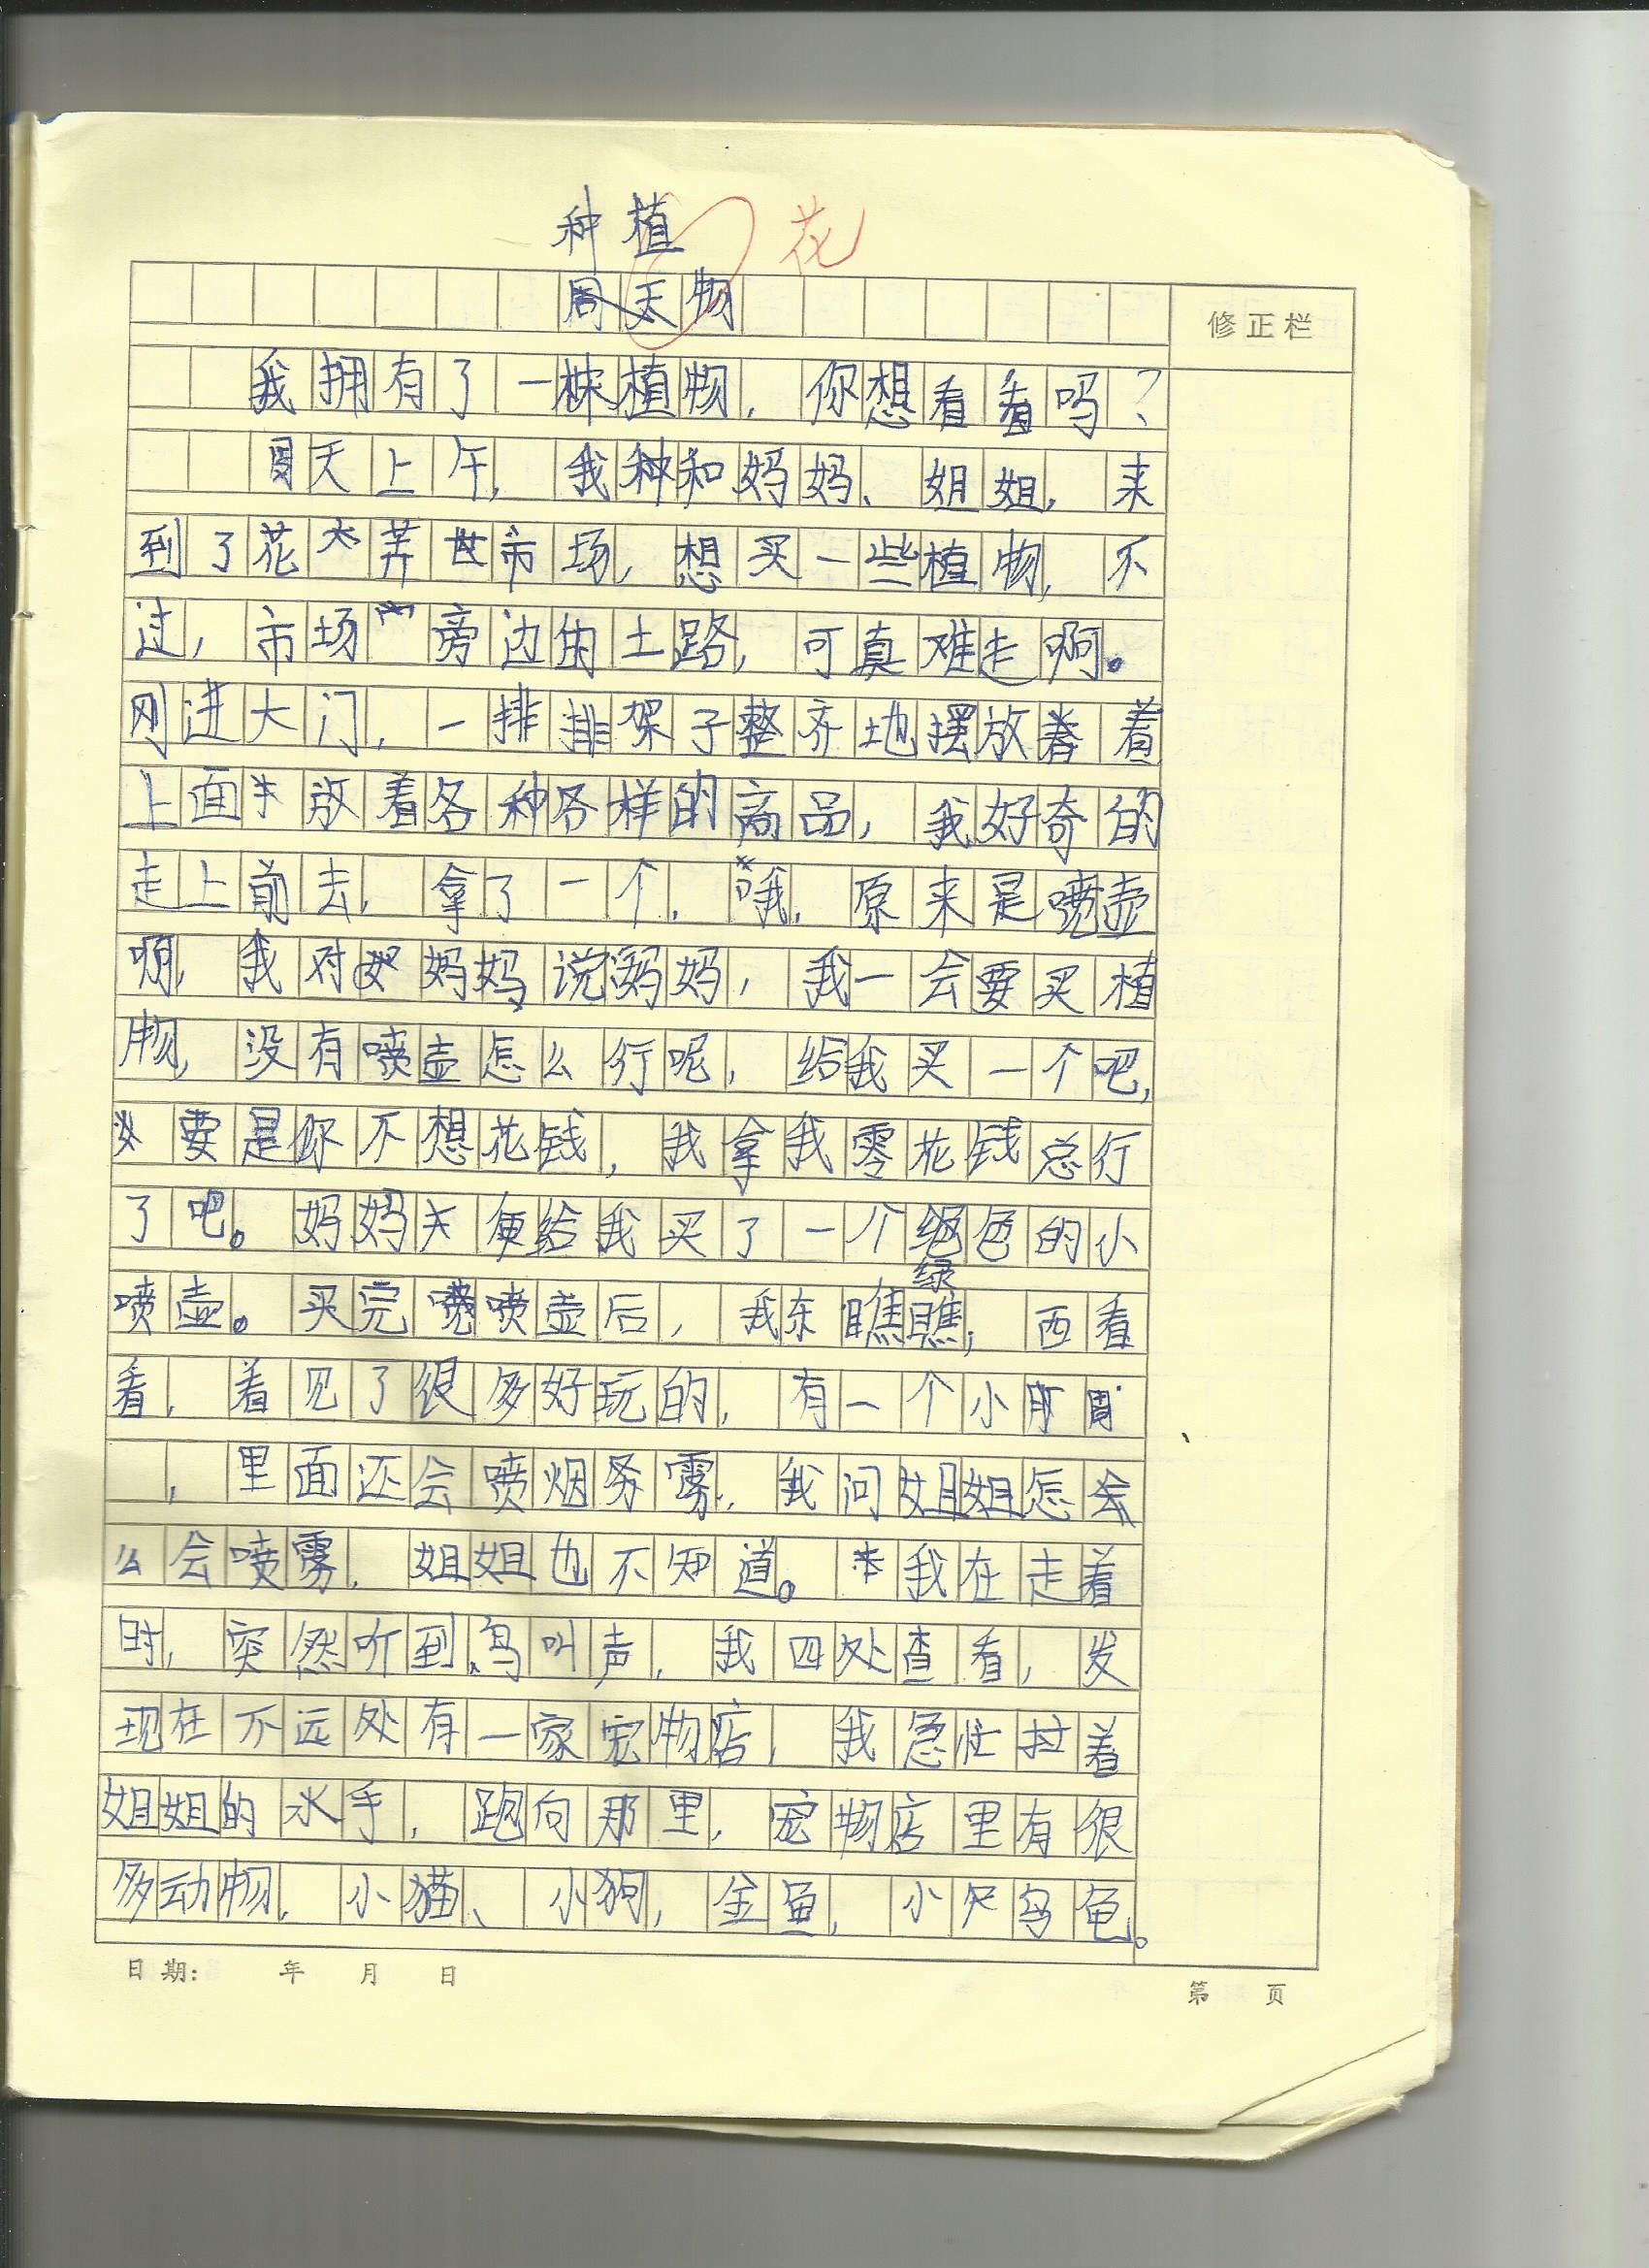 种植 花
物
修正栏
我拥有了一株植物，你想看看吗？
周天上午，我和妈妈、姐姐，来
到了花卉市场，想买一些植物，不
过，市场旁边的土路，可真难走啊。
刚进大门，一排排架子整齐地摆放着
上面放着各种各样的商品，我好奇的
走上前去，拿了一个，哦，原来是喷壶
啊，我对妈妈说妈妈，我一会要买植
物，没有喷壶怎么行呢，给我买一个吧，
要是你不想花钱，我拿我零花钱总行
了吧。妈妈便给我买了一个绿色的小
喷壶。买完喷壶后，我东瞧瞧，西看
看，看见了很多好玩的，有一个小
，里面还会喷烟雾，我问姐姐怎
么会喷雾，姐姐也不知道。我在走着
时，突然听到鸟叫声，我四处查看，发
现在不远处有一家宠物店，我急忙拉着
姐姐的手，跑向那里，宠物店里有很
多动物，小猫、小狗，金鱼，小乌龟。
日期： 年 月 日
第 页